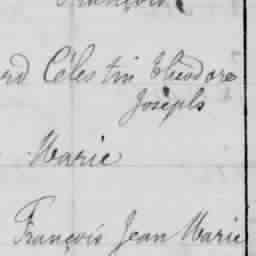 François
rd Célestin Théodore
Joseph
Marie
François Jean Marie